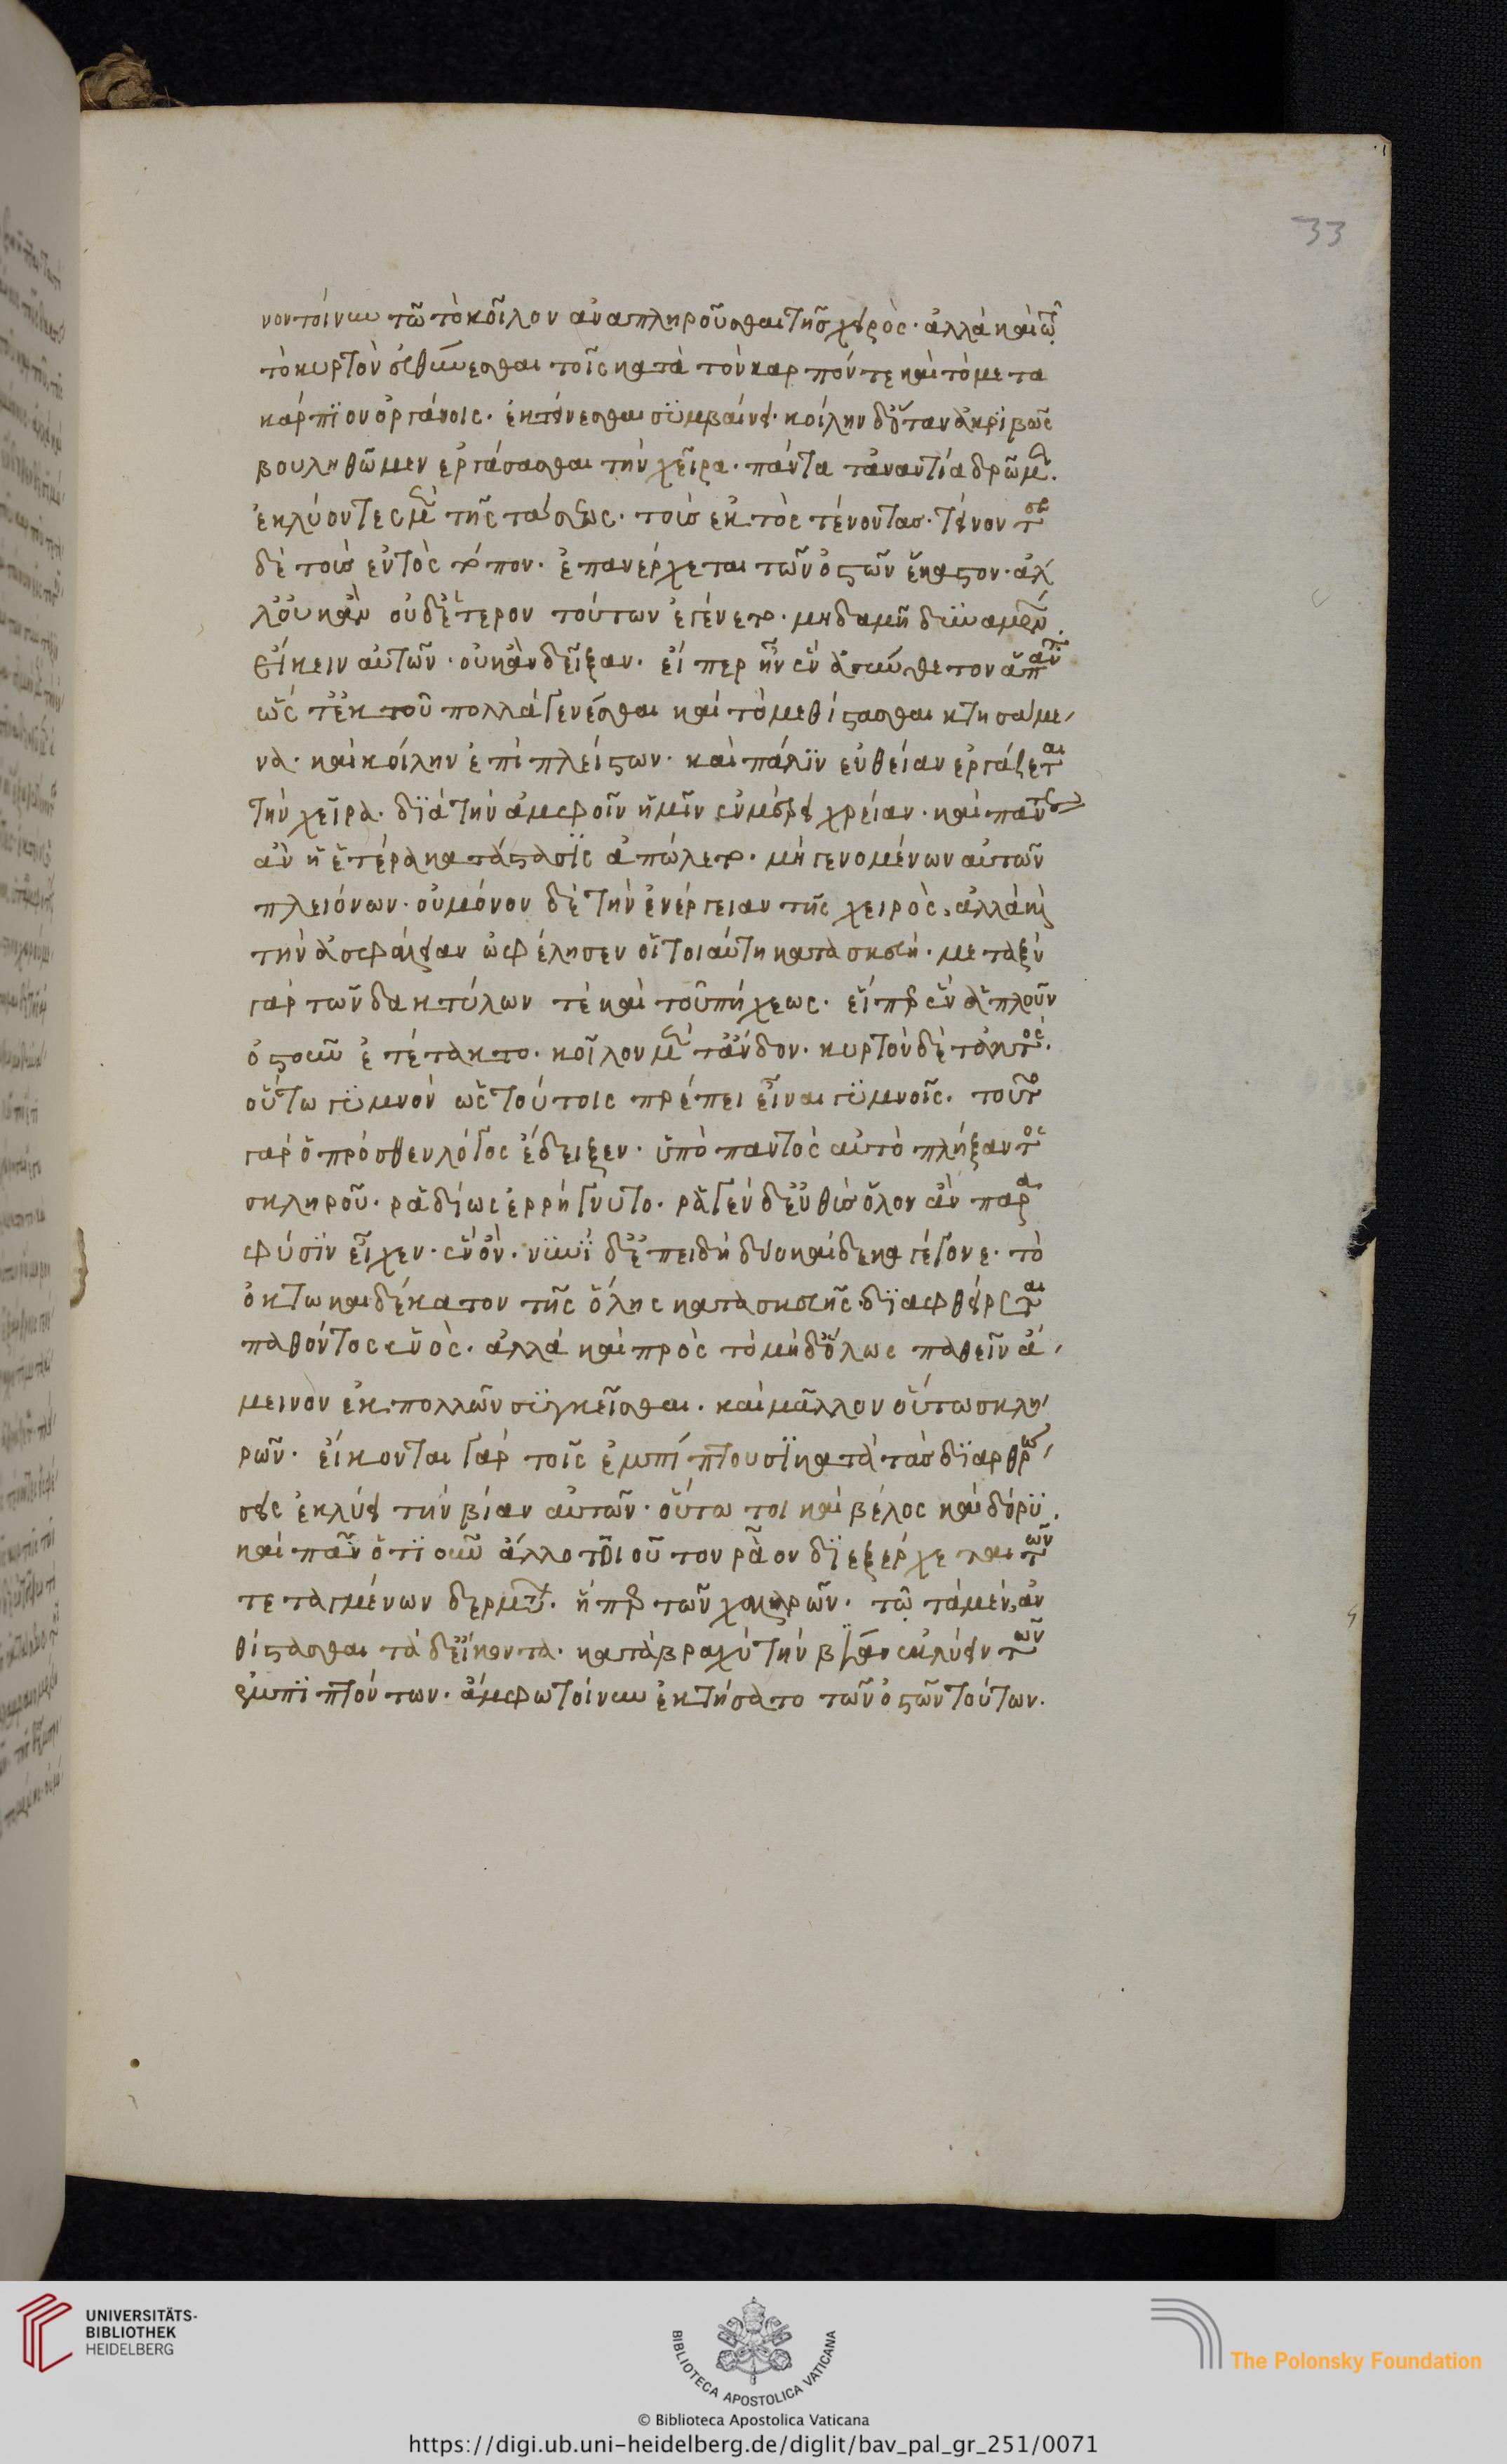 33
νον τοίνυν τῶ τὸ κοῖλον ἀναπληροῦσθαι τῆς χειρός· ἀλλὰ καὶ τῶ
τὸ κυρτὸν εὐθύνεσθαι τοῖς κατὰ τὸν καρπόν τε καὶ τὸ μετα
κάρπϊον ὀργάνοις. ἐκτείνεσθαι συμβαίνει· κοίλην δ' ὅταν ἀκριβῶς
βουληθῶμεν ἐργάσασθαι τὴν χεῖρα· πάντα τἀναντία δρῶμεν.
ἐκλύοντες μὲν τῆς τάσεως· τοὺς ἐκτὸς τένοντας· τείνοντες
δὲ τοὺς ἐντὸς τόπον· ἐπανέρχεται τῶν ὀστῶν ἕκαστον· ἀλ
λ' οὐκ ἂν οὐδέτερον τούτων ἐγένετο· μηδαμῆ δυναμένων
εἴκειν αὐτῶν· οὐκ ἂν δ' εἶξαν· εἴπερ ἦν ἓν ἀσύνθετον ἅπαν
ὥς τ' ἐκ τοῦ πολλὰ γενέσθαι καὶ τὸ μεθίστασθαι κτησάμε
να· καὶ κοίλην ἐπὶ πλεῖστων· καὶ πάλϊν εὐθεῖαν ἐργάζεται
τὴν χεῖρα· διὰ τὴν ἀμφοῖν ἡμῖν ἐν μέρει χρείαν· καὶ πάντως
ἂν ἡ ἑτέρα κατάστασϊς ἀπώλετο· μὴ γενομένων αὐτῶν
πλειόνων· οὐ μόνον δὲ τὴν ἐνέργειαν τῆς χειρὸς, ἀλλὰ καὶ
τὴν ἀσφάλειαν ὠφέλησεν ἡ τοιαύτη κατασκευή· μεταξὺ
γὰρ τῶν δακτύλων τὲ καὶ τοῦ πήχεως· εἴπερ ἓν ἁπλοῦν
ὀστοῦν ἐτέτακτο· κοῖλον μὲν τἄνδον· κυρτὸν δὲ τὸ ἐκτός·
οὕτω γυμνὸν ὡς τούτοις πρέπει εἶναι γυμνοῖς· τοῦτο
γὰρ ὁ πρόσθεν λόγος ἔδειξεν· ὑπὸ παντὸς αὐτὸ πλήξαντος
σκληροῦ· ῥαδίως ἐρρήγνυτο· ῥαγὲν δ' εὐθὺς ὅλον ἂν παρὰ
φύσϊν εἶχεν· ἓν ὄν· νυνῒ δ' ἐπειδὴ δυοκαίδεκα γέγονε· τὸ
ὀκτωκαιδέκατον τῆς ὅλης κατασκευῆς διαφθείρεται
παθόντος ἑνός· ἀλλὰ καὶ πρὸς τὸ μὴ δ' ὅλως παθεῖν ἄ
μεινον ἐκ πολλῶν συγκεῖσθαι· καὶ μᾶλλον οὕτω σκλη
ρῶν· εἴκονται γὰρ τοῖς ἐμπίπτουσϊ κατὰ τὰς διαρθρώ
σεις ἐκλύει τὴν βίαν αὐτῶν· οὕτω τοι καὶ βέλος καὶ δόρϋ.
καὶ πᾶν ὅτϊ οὖν ἄλλο τοιοῦτον ῥᾶον διεξέρχεται τῶν
τεταγμένων δερμάτων· ἤπερ τῶν χαλαρῶν· τῶ τὰ μὲν, ἀν
θίστασθαι τὰ δ' εἴκοντα· κατὰ βραχὺ τὴν βίαν ἐκλύειν τῶν
ἐμπϊπτόντων· ἄμφω τοίνυν ἐκτήσατο τῶν ὀστῶν τούτων.
UNIVERSITÄTS-
BIBLIOTHEK
HEIDELBERG
BIBLIOTECA APOSTOLICA VATICANA
The Polonsky Foundation
© Biblioteca Apostolica Vaticana
https://digi.ub.uni-heidelberg.de/diglit/bav_pal_gr_251/0071